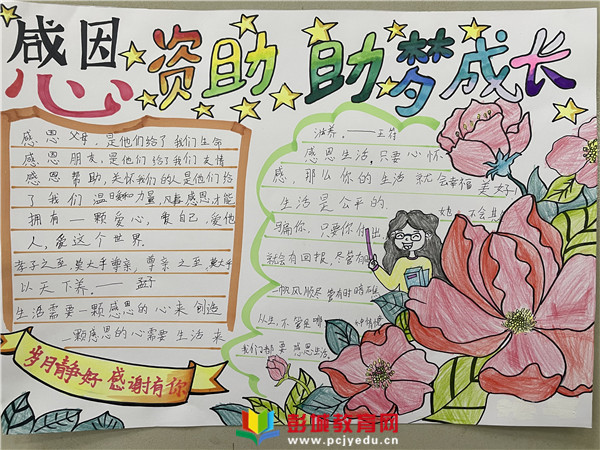 感恩资助 助梦成长
感恩父母,是他们给了我们生命
感恩朋友,是他们给了我们友情
感恩帮助,关怀我们的人是他们给
了我们温暖和力量,感恩才能
拥有一颗爱心,爱自己,爱他
人,爱这个世界.
孝子之至,莫大乎尊亲,尊亲之至,莫大乎
以天下养.——孟子
生活需要一颗感恩的心来创造
一颗感恩的心需要生活来
滋养.——王符
感恩生活,只要心怀
感,那么你的生活就会幸福美好!
生活是公平的.
她不会
骗你,只要你付出
就会有回报,尽管有时
一帆风顺尽管有时
从生,不管
我们都要感恩生活.
岁月静好 感谢有你
彭城教育网
www.pcjyedu.cn